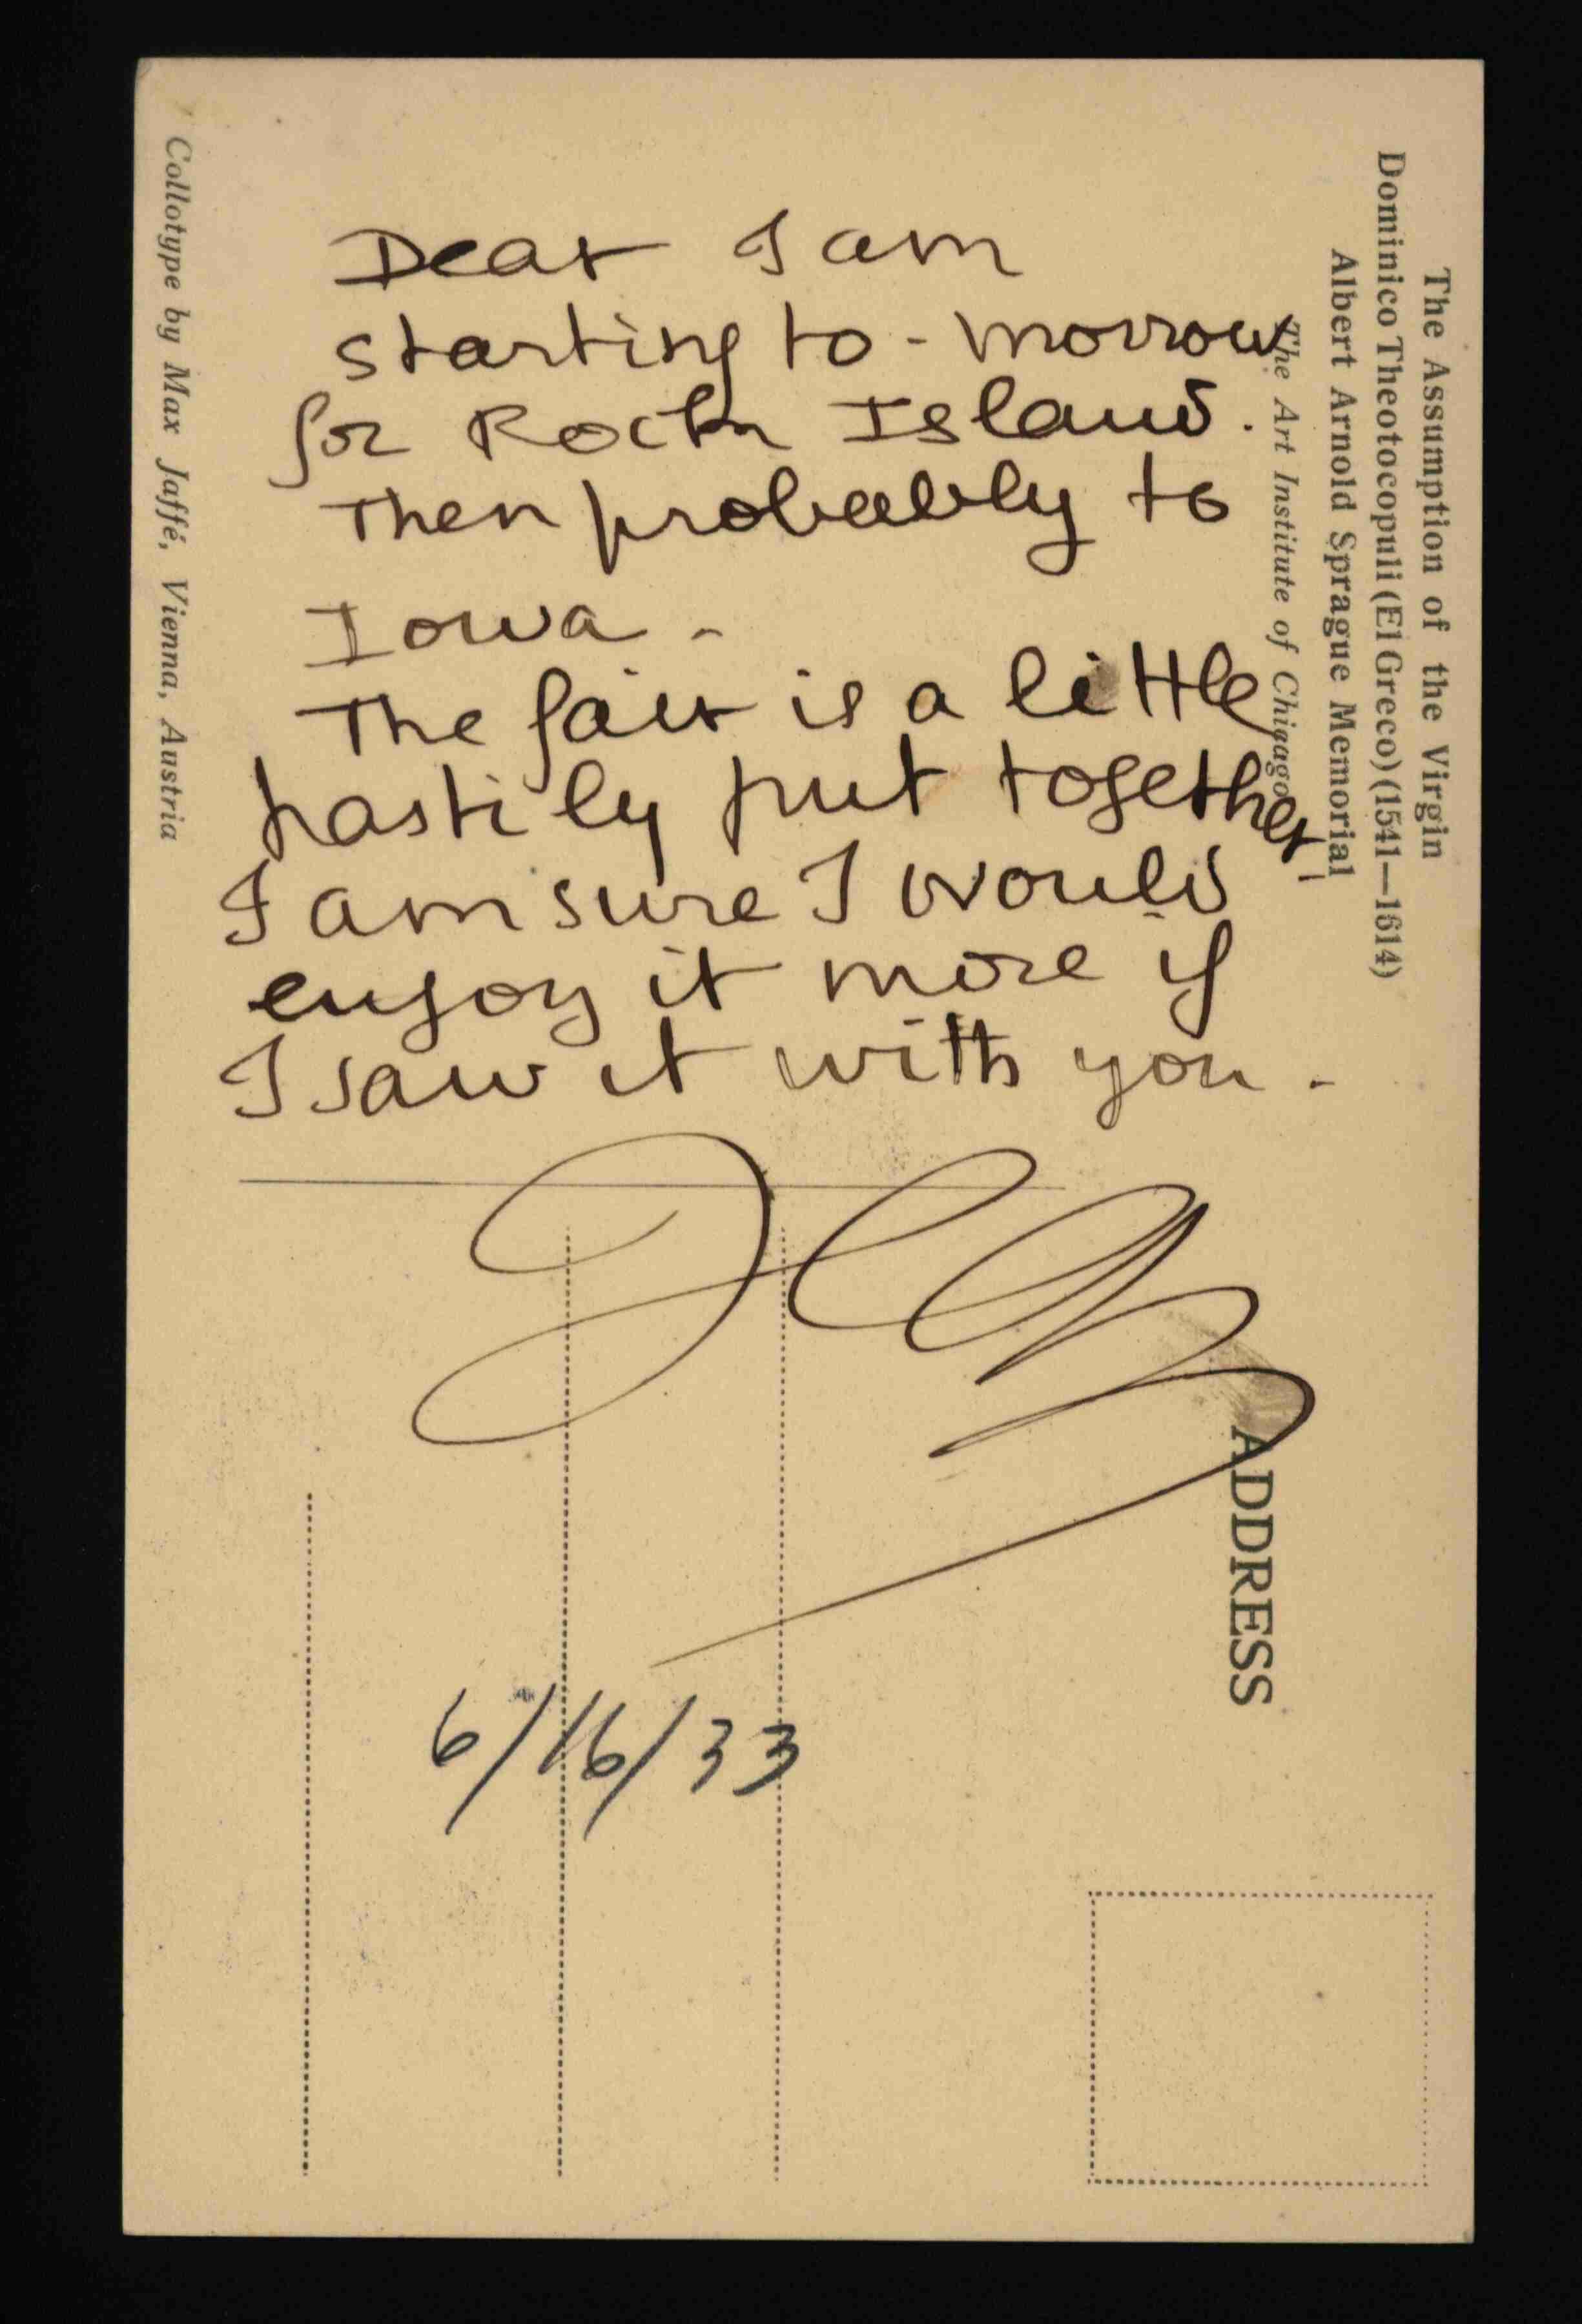 Dear I am
starting to-morrow
for Rock Island.
Then probably to
Iowa -
The fair is a little
hastily put together -
I am sure I would
enjoy it more if
I saw it with you -
6/16/33
The Assumption of the Virgin
Dominico Theotocopuli (El Greco) (1541—1614)
Albert Arnold Sprague Memorial
The Art Institute of Chigago
ADDRESS
Collotype by Max Jaffé, Vienna, Austria